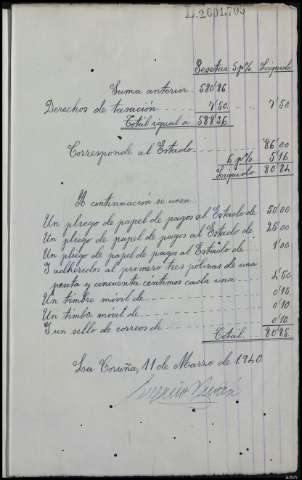 Pesetas 5 p% Líquido
Suma anterior 580'86
Derechos de tasación 7'50 7'50
Total igual a 588'36
Corresponde al Estado 86'00
6 p% 5'16
Líquido 80'84
A continuación se unen
Un pliego de papel de pagos al Estado de 50'00
Un pliego de papel de pagos al Estado de 25'00
Un pliego de papel de pagos al Estado de 1'00
Y adheridos al primero tres polizas de una
peseta y cincuenta centimos cada una 4'50
Un timbre móvil de 0'15
Un timbre móvil de 0'10
Y un sello de correos de 0'10
Total 80'85
La Coruña, 11 de Marzo de 1.940.